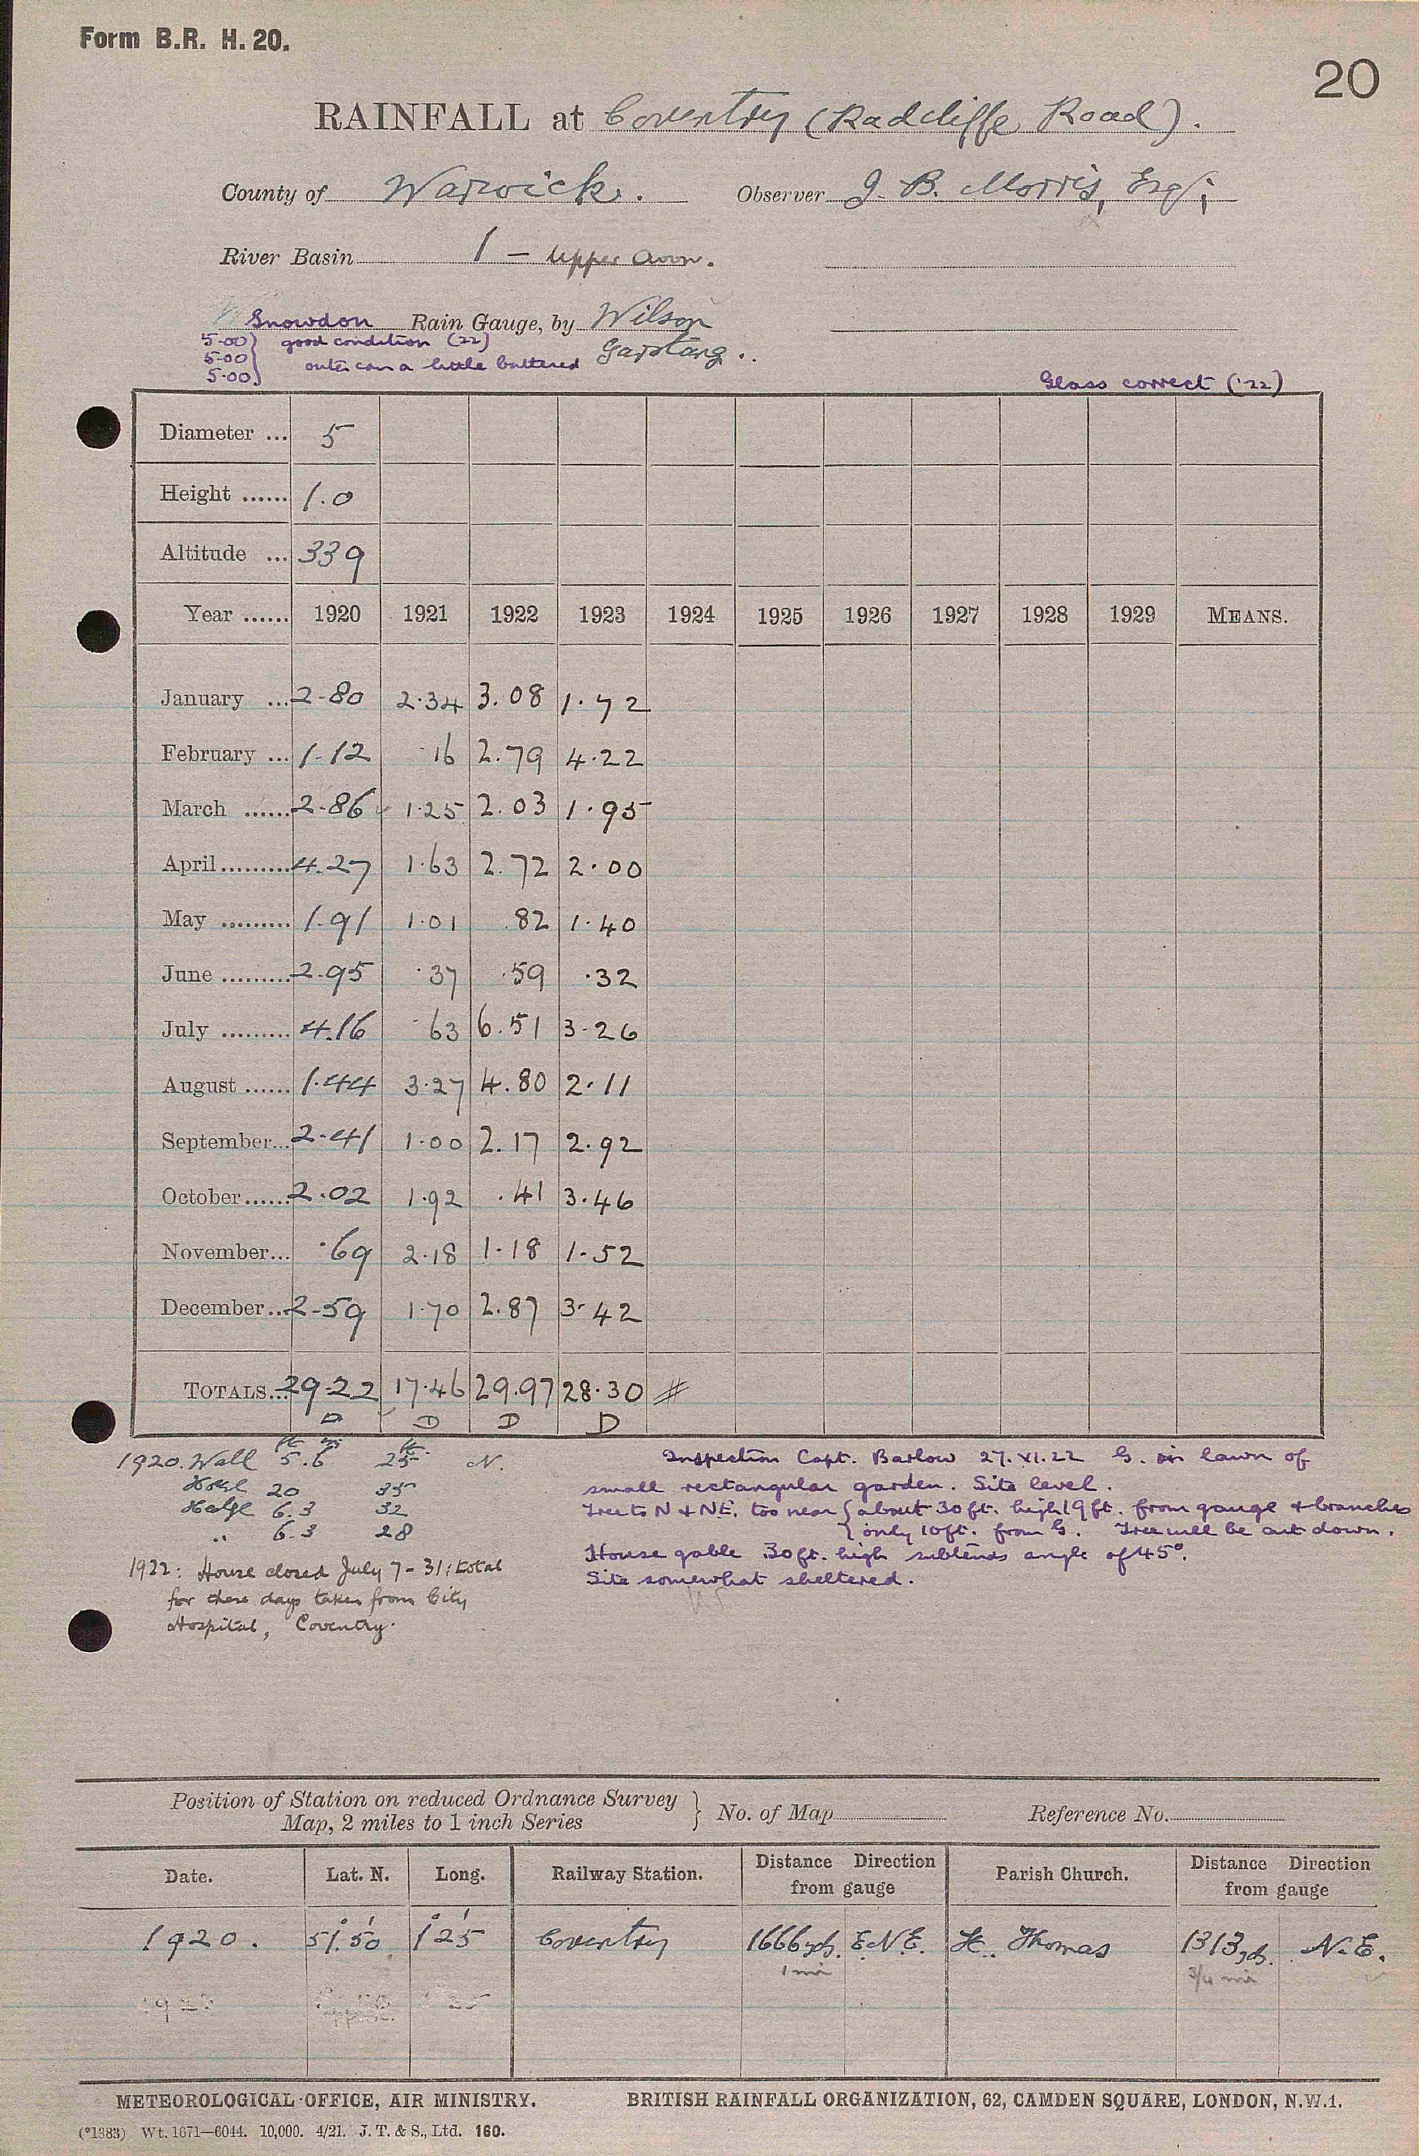 Form B.R. H. 20.
20
RAINFALL at Coventry (Radcliffe Road).
County of Warwick. Observer J. B. Morris, Esq;
River Basin 1 – Upper Avon.
Snowdon Rain Gauge, by Wilson
5.00} good condition (22) Garstang..
5.00} outer can a little battered
5.00}
Glass correct ('22)
Diameter ... 5
Height ...... 1.0
Altitude ... 339
Year ...... 1920 1921 1922 1923 1924 1925 1926 1927 1928 1929 MEANS.
January ... 2.80 2.34 3.08 1.72
February ... 1.12 .16 2.79 4.22
March ...... 2.86 1.25 2.03 1.95
April......... 4.27 1.63 2.72 2.00
May ......... 1.91 1.01 .82 1.40
June ......... 2.95 .37 .59 .32
July ......... 4.16 .63 6.51 3.26
August ...... 1.44 3.27 4.80 2.11
September... 2.41 1.00 2.17 2.92
October...... 2.02 1.92 .41 3.46
November... .69 2.18 1.18 1.52
December... 2.59 1.70 2.87 3.42
TOTALS... 29.22 17.46 29.97 28.30 #
D D D D
ft in ft
1920. Wall 5.6 25 N.
20 35
Hedge 6.3 32
" 6.3 28
1922: House closed July 7-31: total
for these days taken from City
Hospital, Coventry.
Inspection Capt. Barlow 27.VI.22 G. in lawn of
small rectangular garden. Site level.
Tree to N & NE. too near {about 30ft. high 19ft. from gauge & branches
} only 10ft. from G. Tree will be cut down.
House gable 30ft. high subtends angle of 45°.
Site somewhat sheltered.
Position of Station on reduced Ordnance Survey
Map, 2 miles to 1 inch Series } No. of Map Reference No.
Date. Lat. N. Long. Railway Station. Distance Direction from gauge Parish Church. Distance Direction from gauge
1920. 51° 50' 1° 25' Coventry 1666 yds. E.N.E. St. Thomas 1313 yds. N.E.
1 mi 3/4 mi
METEOROLOGICAL OFFICE, AIR MINISTRY. BRITISH RAINFALL ORGANIZATION, 62, CAMDEN SQUARE, LONDON, N.W.1.
(*1383) Wt. 1671—6044. 10,000. 4/21. J. T. & S., Ltd. 160.